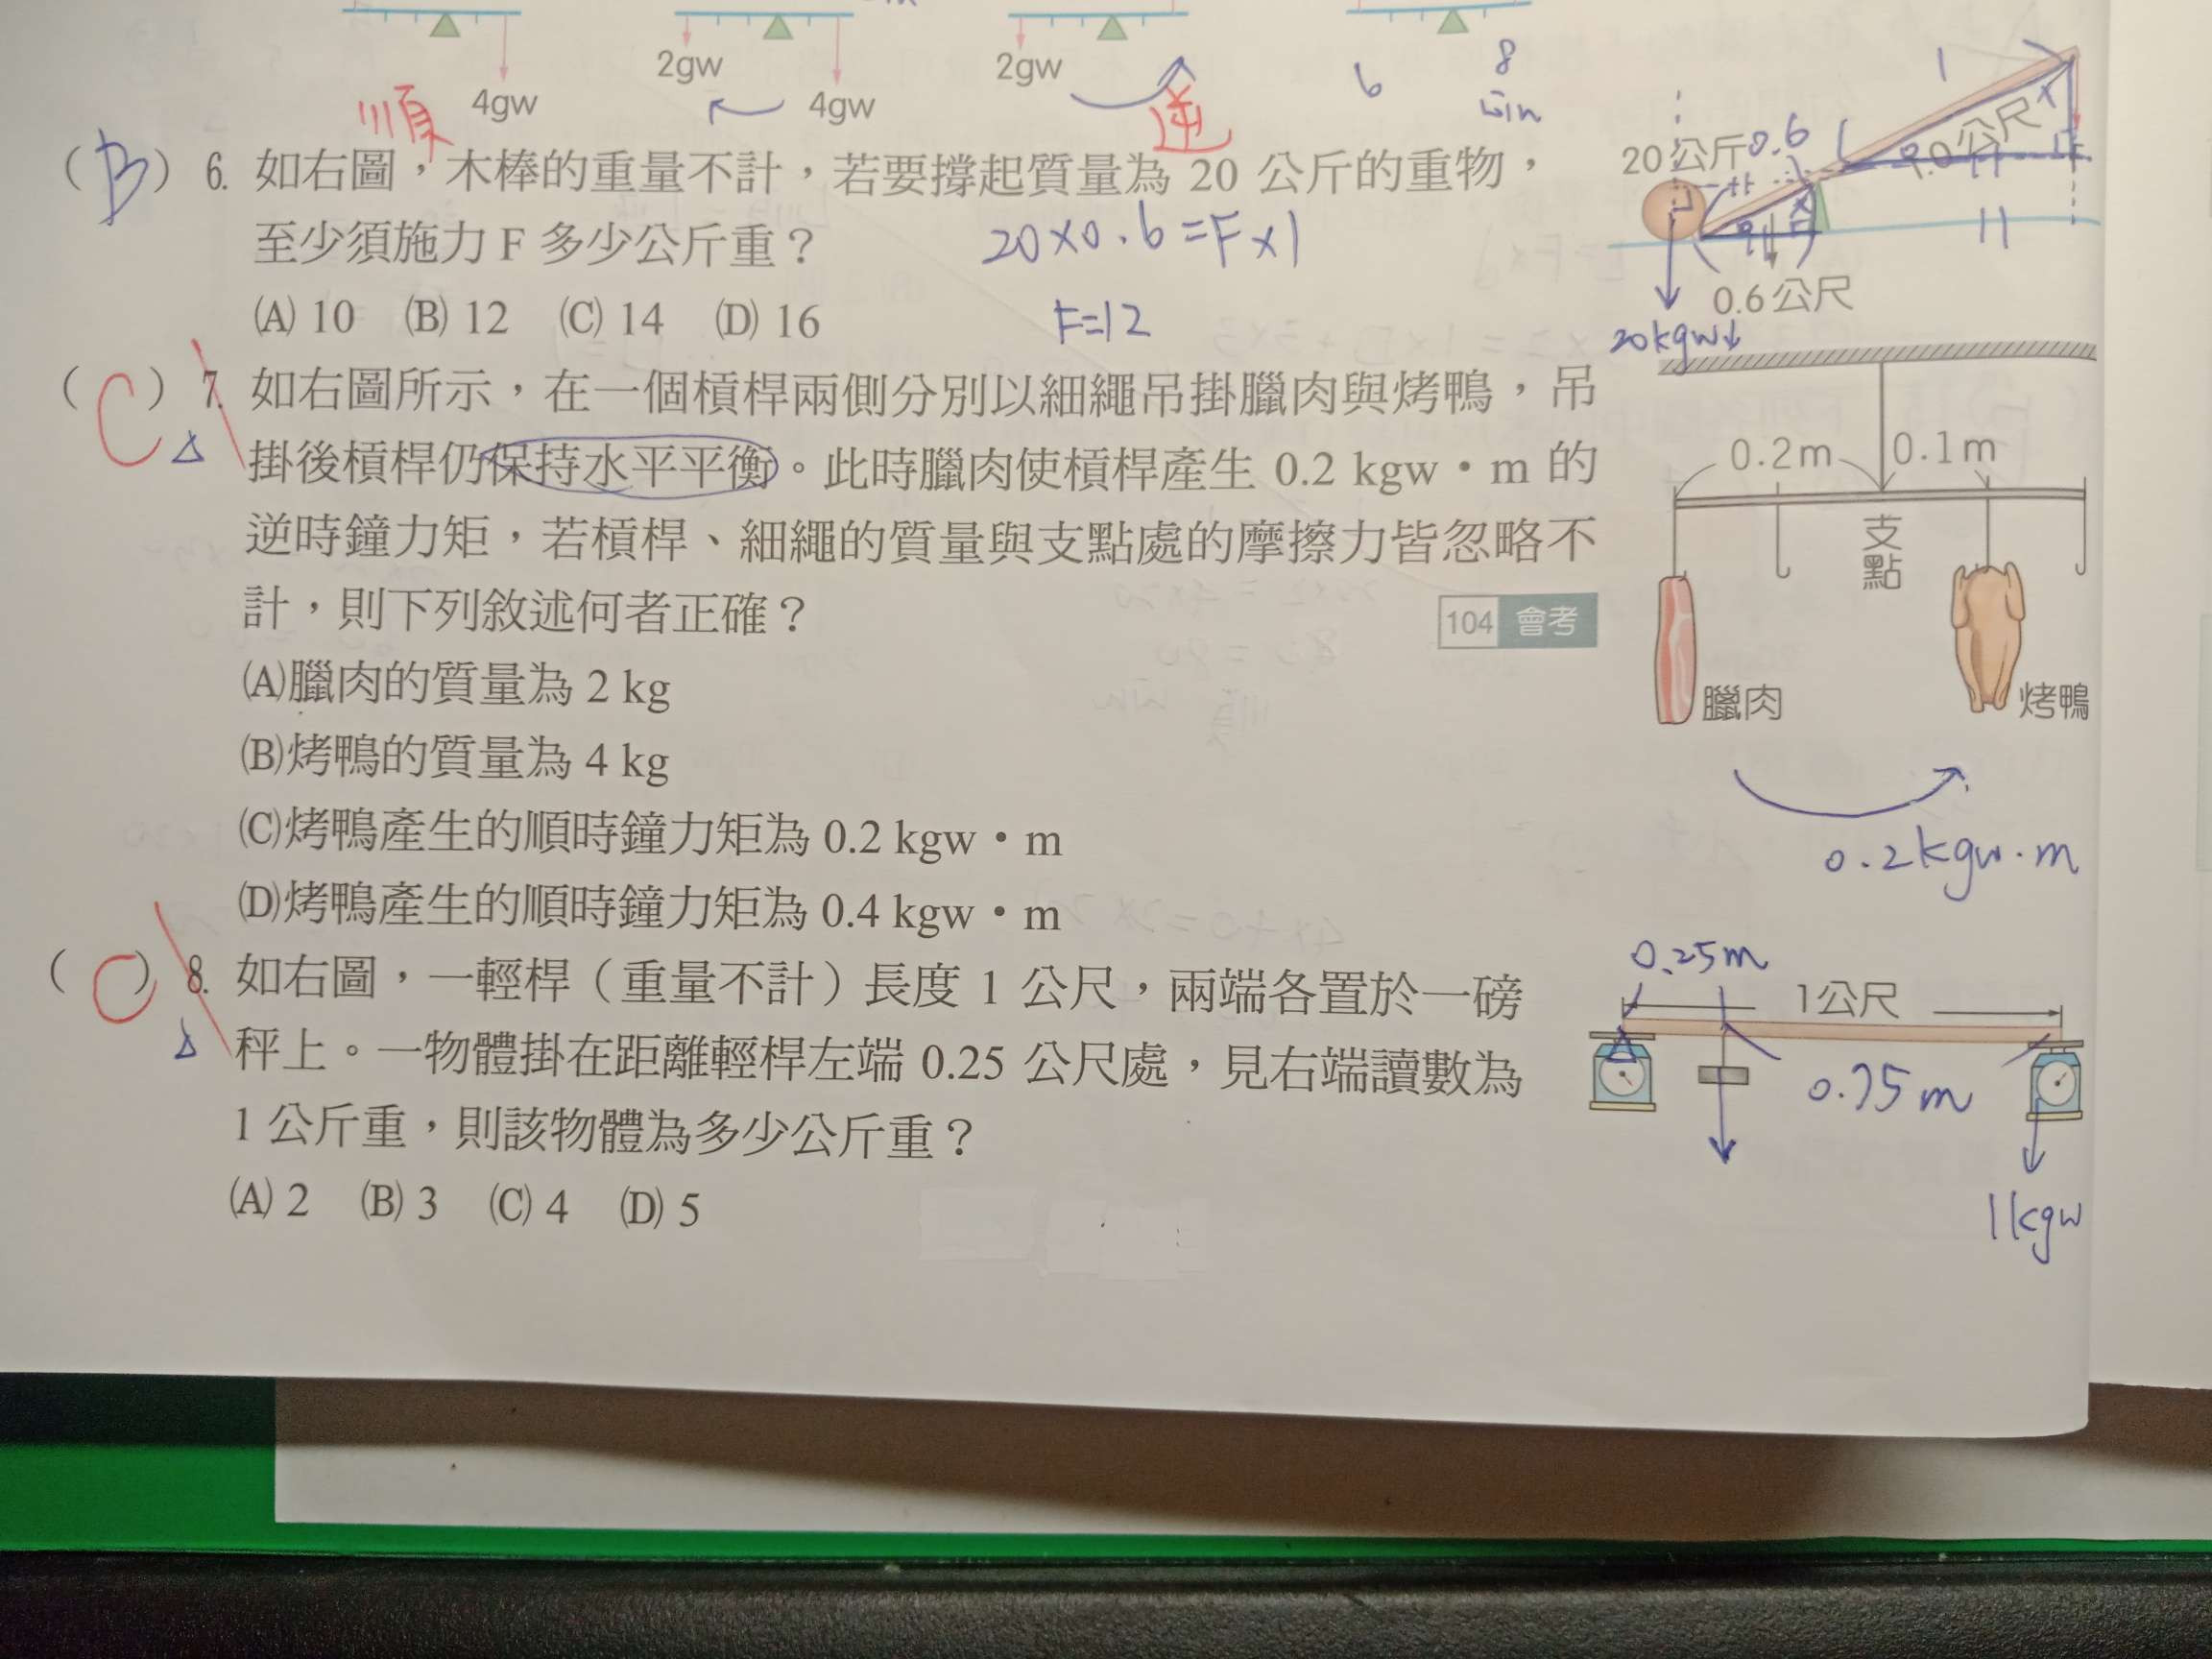 2gw
2gw
4gw
4gw
順
逆
6
8
win
1
(B) 6. 如右圖，木棒的重量不計，若要撐起質量為 20 公斤的重物，
至少須施力 F 多少公斤重？
(A) 10 (B) 12 (C) 14 (D) 16
20×0.6=F×1
F=12
20公斤
0.6
公尺
11
0.6公尺
20kgw↓
(C) 7. 如右圖所示，在一個槓桿兩側分別以細繩吊掛臘肉與烤鴨，吊
掛後槓桿仍保持水平平衡。此時臘肉使槓桿產生 0.2 kgw・m 的
逆時鐘力矩，若槓桿、細繩的質量與支點處的摩擦力皆忽略不
計，則下列敘述何者正確？
104 會考
(A)臘肉的質量為 2 kg
(B)烤鴨的質量為 4 kg
(C)烤鴨產生的順時鐘力矩為 0.2 kgw・m
(D)烤鴨產生的順時鐘力矩為 0.4 kgw・m
0.2m 0.1m
支點
臘肉
烤鴨
0.2kgw.m
(C) 8. 如右圖，一輕桿（重量不計）長度 1 公尺，兩端各置於一磅
秤上。一物體掛在距離輕桿左端 0.25 公尺處，見右端讀數為
1 公斤重，則該物體為多少公斤重？
(A) 2 (B) 3 (C) 4 (D) 5
0.25m
1公尺
0.75m
1kgw